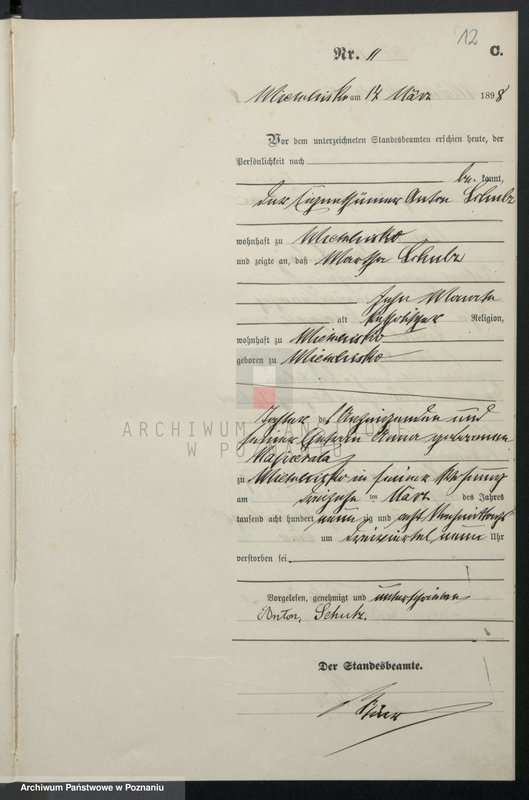 12
Nr. 11 C.
am 17 März 1898
Vor dem unterzeichneten Standesbeamten erschien heute, der
Persönlichkeit nach
be kannt,
der Eigenthümer Anton Schulz
wohnhaft zu
und zeigte an, daß Martha Schulz
zehn Monate
alt katholischer Religion,
wohnhaft zu
geboren zu
Tochter des Anzeigenden und
seiner Ehefrau Anna geborenen
ARCHIWUM PAŃSTWOWE
W POZNANIU
zu in seiner Wohnung
am ten März des Jahres
tausend acht hundert neun zig und acht Vormittags
um dreiviertel neun Uhr
verstorben sei.
Vorgelesen, genehmigt und unterschrieben
Anton, Schulz.
Der Standesbeamte.
Archiwum Państwowe w Poznaniu